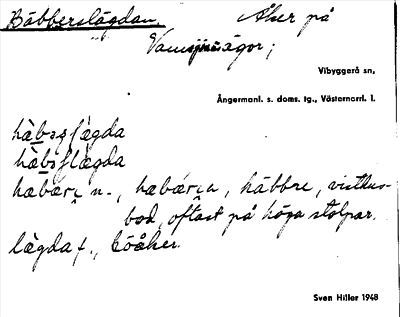 Bäbberslägdan. Åker på
ägor;
Vibyggerå sn,
Ångermanl. s. doms. tg., Västernorrl. l.
hàbəʂlàgda
hàbəʂlàgda
häbár̩ n., häbár̩a, häbbre, visthus-
bod, oftast på höga stolpar.
làgda f., åker.
Sven Hiller 1948